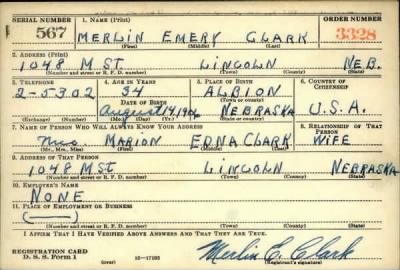 SERIAL NUMBER 1. NAME (Print) ORDER NUMBER
567 MERLIN EMERY CLARK 3328
(First) (Middle) (Last)
2. ADDRESS (Print)
1048 M ST. LINCOLN NEB.
(Number and street or R. F. D. number) (Town) (County) (State)
3. TELEPHONE 4. AGE IN YEARS 5. PLACE OF BIRTH 6. COUNTRY OF CITIZENSHIP
2-5302 34 ALBION
DATE OF BIRTH (Town or county)
August 14 1906 NEBRASKA U.S.A.
(Exchange) (Number) (Mo.) (Day) (Yr.) (State or country)
7. NAME OF PERSON WHO WILL ALWAYS KNOW YOUR ADDRESS 8. RELATIONSHIP OF THAT PERSON
Mrs. MARION EDNA CLARK WIFE
(Mr., Mrs., Miss) (First) (Middle) (Last)
9. ADDRESS OF THAT PERSON
1048 M St LINCOLN NEBRASKA
(Number and street or R. F. D. number) (Town) (County) (State)
10. EMPLOYER'S NAME
NONE
11. PLACE OF EMPLOYMENT OR BUSINESS
(—)
(Number and street or R. F. D. number) (Town) (County) (State)
I AFFIRM THAT I HAVE VERIFIED ABOVE ANSWERS AND THAT THEY ARE TRUE.
REGISTRATION CARD
D. S. S. Form 1 (over) 16—17105 Merlin E. Clark
(Registrant's signature)